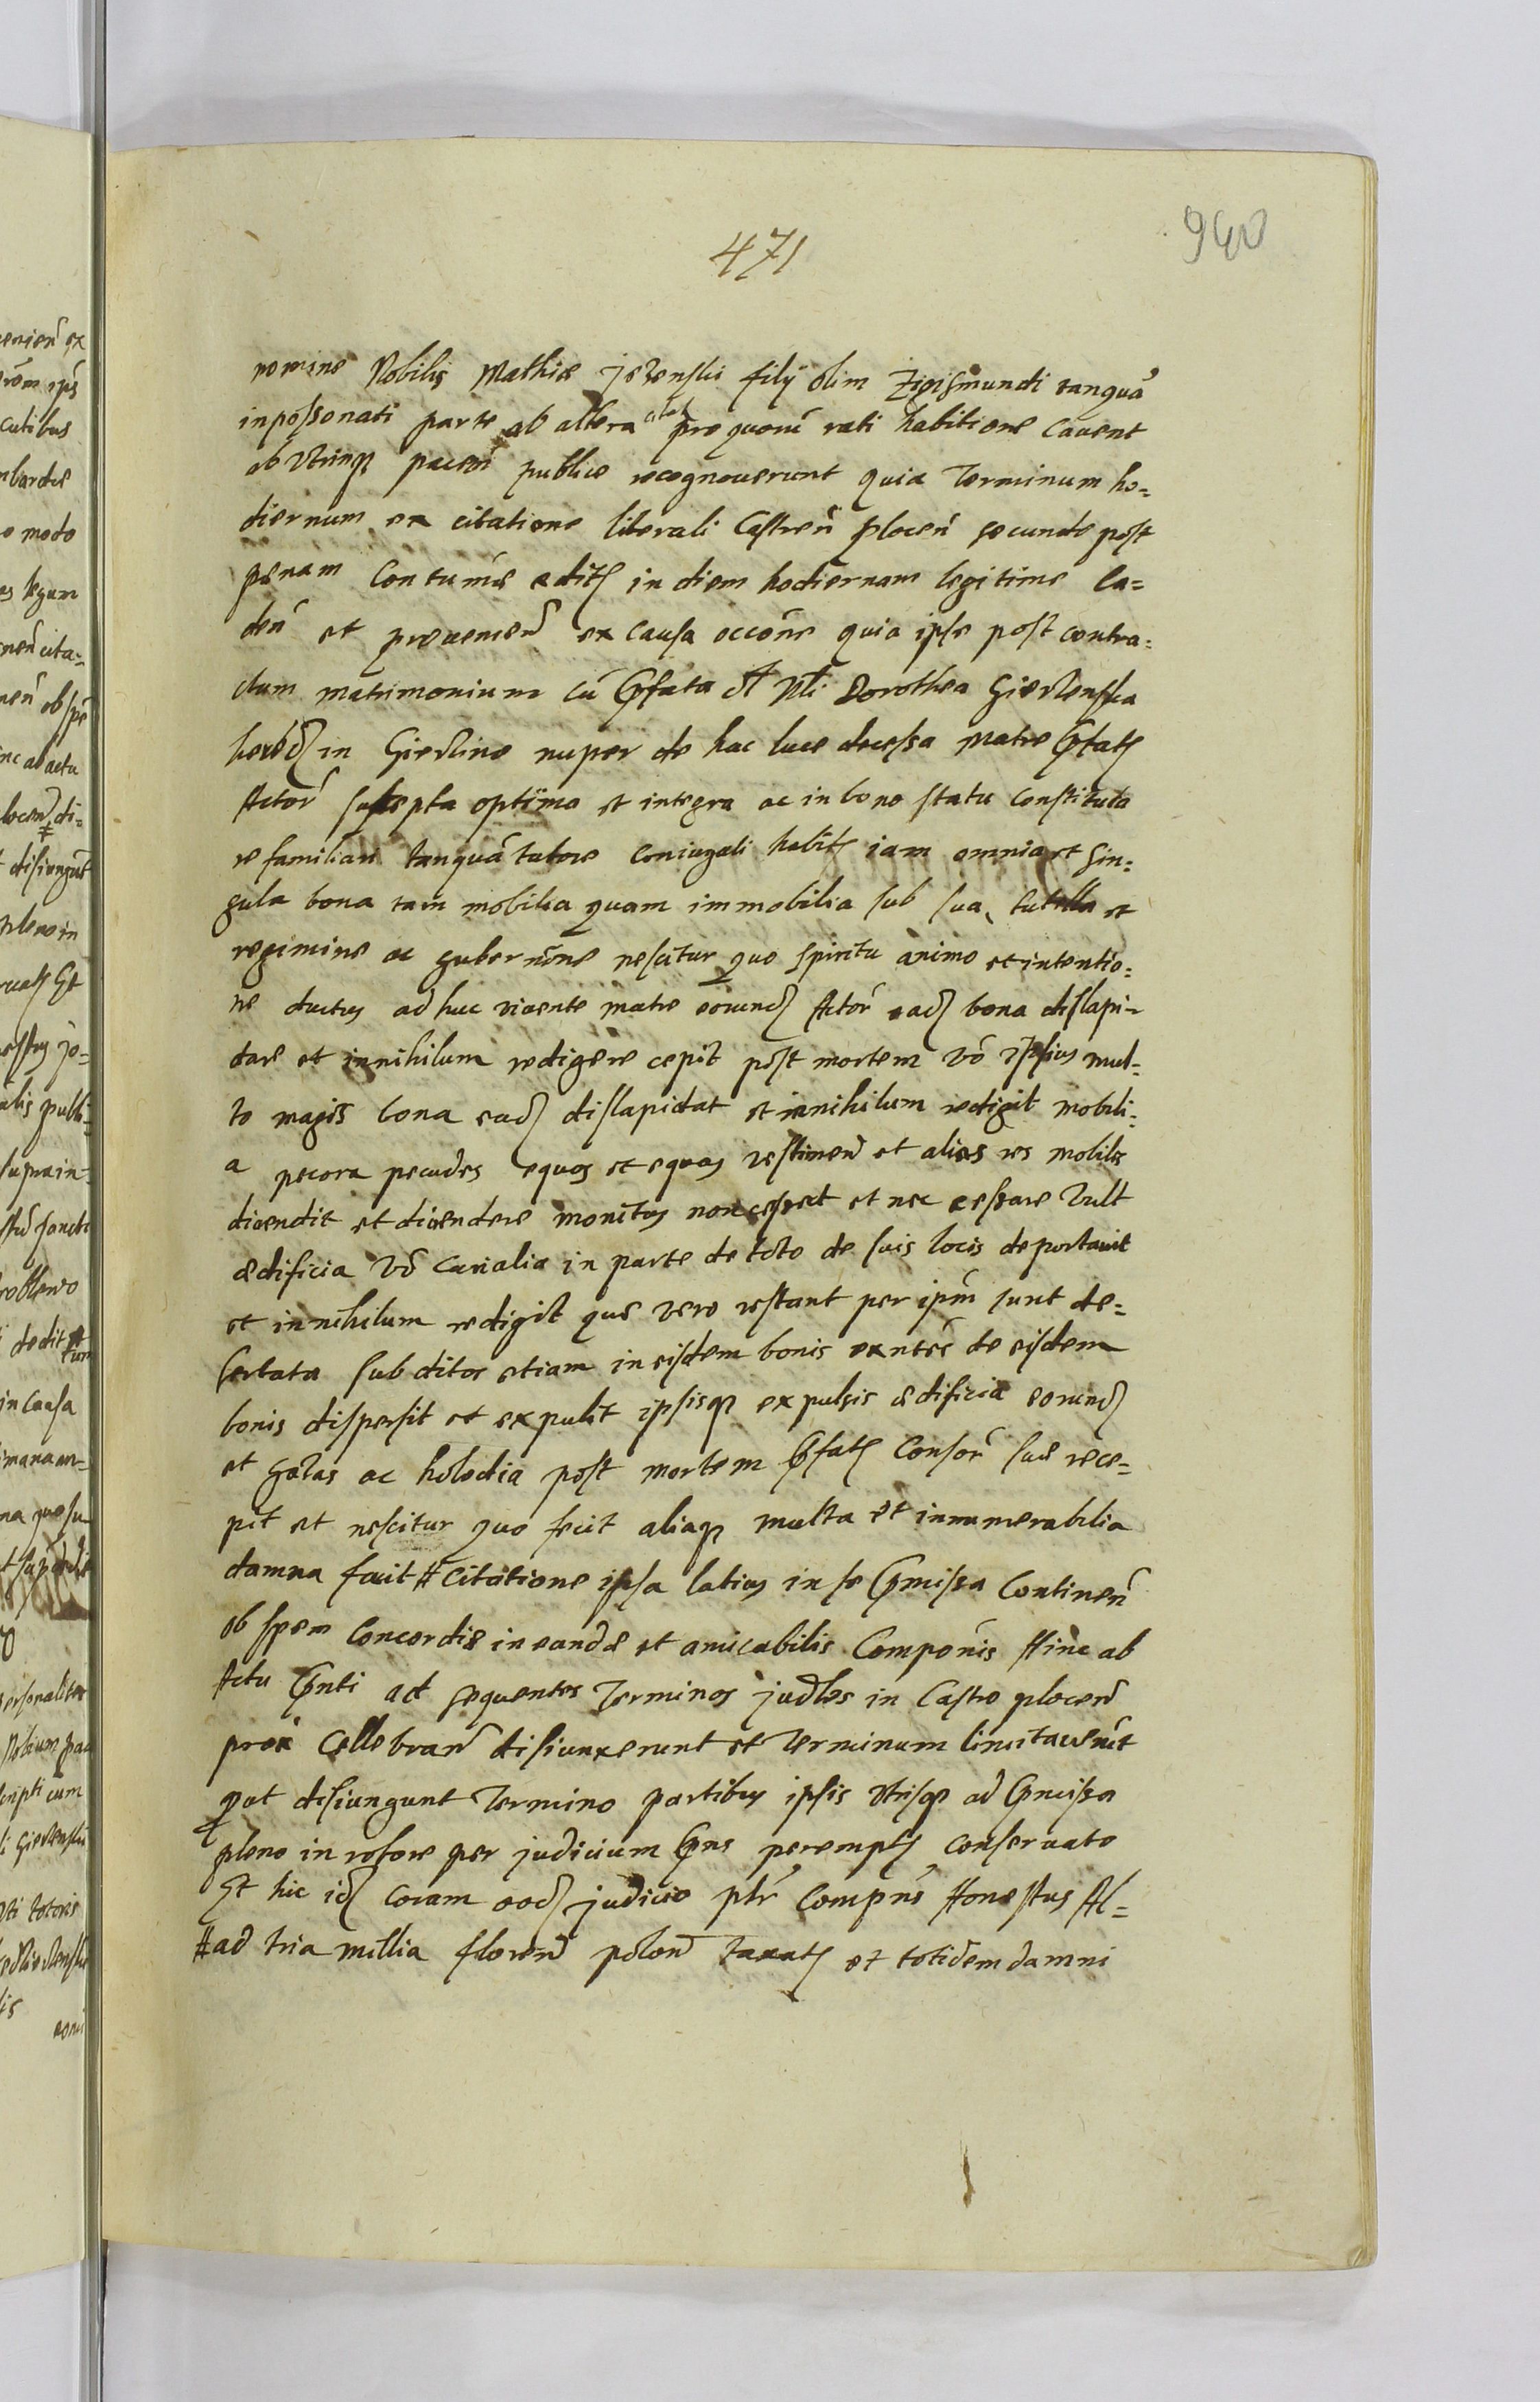 471
940
nomine Nobilis Mathiæ Jezenski filÿ olim Zigismundi tanquā
inpossonati parte ab altera pro quorū rati habitione Cauent
ab Vtrinqȝ pacen̄ publice recognouerunt quia Terminum ho=
diernum ex citatione literali Castren̄ plocen̄ secundo post
pænam Contumæ edit in diem hodiernam legitime Ca=
den̄ et proueniен̄ ex Causa occōne quia ipse post contra=
ctum matrimonium cū Pfata Dorothea Gierlenska
in Gierlino nuper de hac luce decessa matre Pfat
Actor̄ suscepta optima et integra ac in bono statu Constituta
re familiari tanquā tutore Coniugali habit iam omnia et sin=
gula bona tam mobilia quam immobilia sub sua tutella et
regimine ac gubernōne nescitur quo spiritu animo et intentio=
ne ductus ad huc viuente matre eorund Actor̄ ead bona dislapi=
dare et innihilum redigere cepit post mortem Vō ipsius mul=
to magis bona ead dislapidat et innihilum redigit mobili=
a pecora pecudes equos et equas vestimen̄ et alias res mobiles
diuendit et diuendere monitus non cessat et nec cessare Vult
ædificia Vō Curialia in parte de toto de suis locis deportauit
et innihilum redigit quæ vero restant per ipm̄ sunt de=
sertata subditos etiam in eisdem bonis exntēs de eisdem
bonis dispersit et expulit ipsisqȝ expulsis ædificia eorund
et ac post mortem Pfat Consor̄ suæ rece=
pit et nescitur quo fecit aliaqȝ multa et innumerabilia
damna fecit # Citatione ipsa latius in se Pmissa Continen̄
ob spem Concordiæ ineandæ et amicabilis Componis Hinc ab
Actu Pnti ad sequentes Terminos judles in Castro plocen̄
prox Cellebran̄ disiunxerunt et Terminum limitauerūt
put disiungunt Termino partibus ipsis Vtrisqȝ ad Pmissa
pleno in robore per judicium Pns perempt conseruato
Et hic id Coram eod judicio plr̄ Compn̄s Honestus Al=
# ad tria millia floren̄ polon̄ taxat et totidem damni